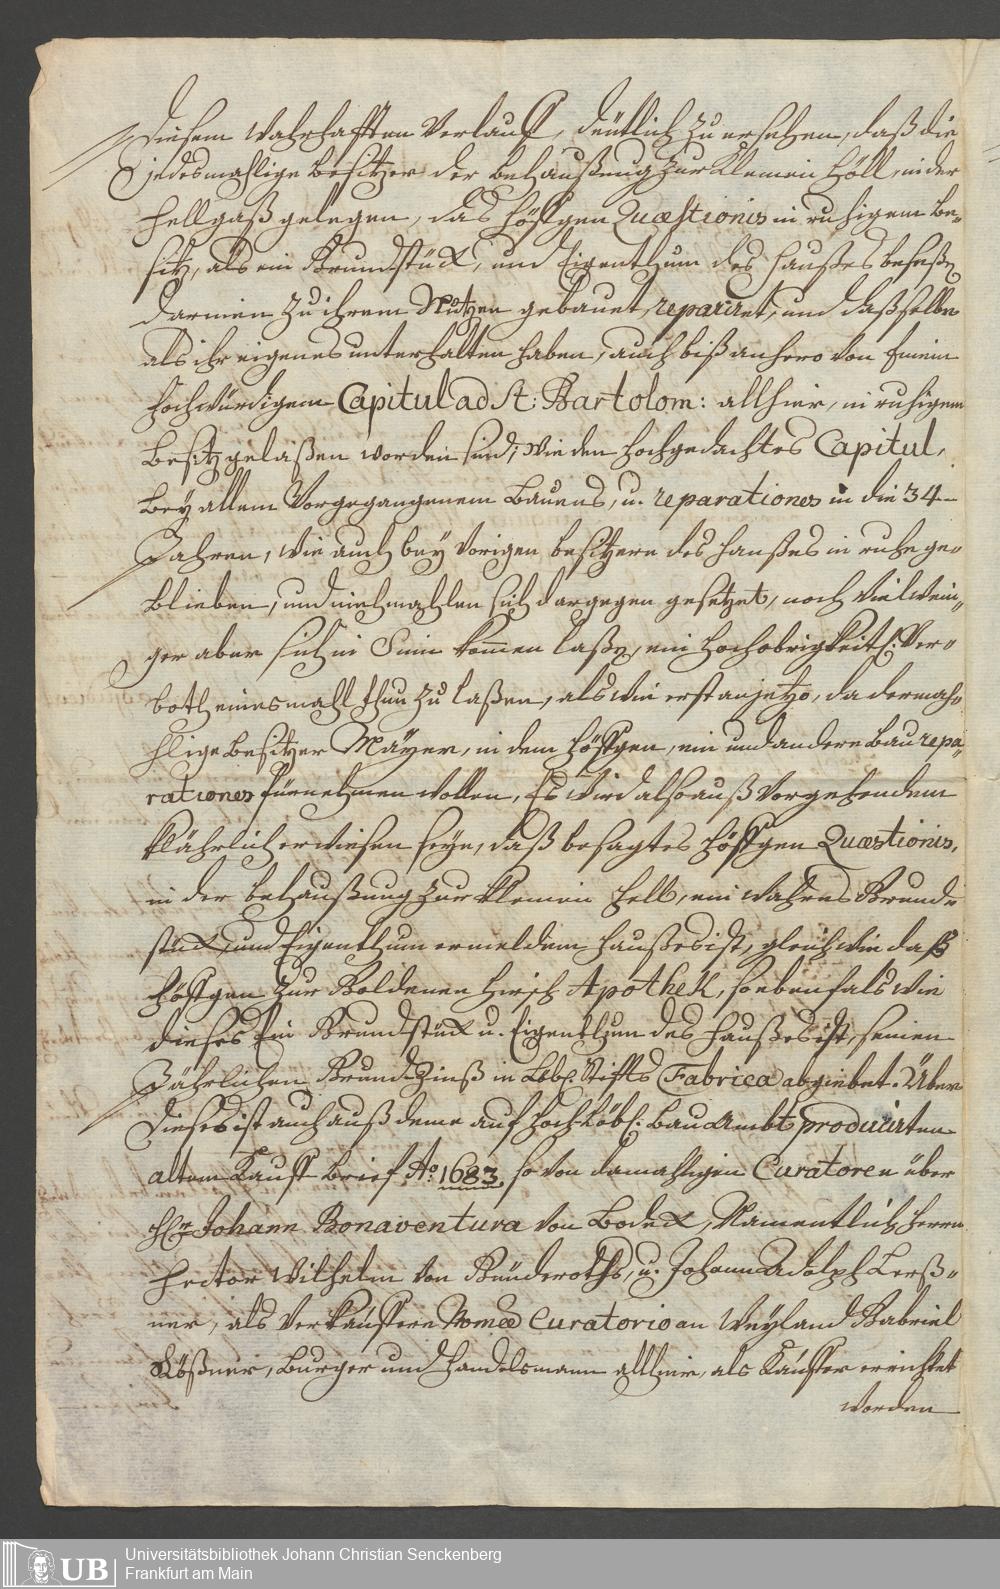 diesem wahrhafften Verlauff, deütlich zu ersehen, daß die
jedesmahlige besitzer der behaußung zur Kleinen Höll, in der
Hellgaß gelegen, das höffgen Quæstionis in ruhigem Be-
sitz, als ein Grundstück, und Eigenthum des Haußes beseße,
darinnen zu ihrem Nutzen gebauet, repariret, und dasselbe
als ihr eigenes unterhalten haben, auch biß anhero von Einem
Hochwürdigem Capitul ad St: Bartolom: allhier, in ruhigem
Besitz gelaßen worden sind; wie den hochgedachtes Capitul,
bey allem Vorgegangenem Bauens, u. reparationes in die 34
Jahren, wie auch bey vorigen besitzern des Haußes in ruhe ge-
blieben, und niehmahlen sich dargegen gesetzet, noch viel wени-
ger aber sich in Sinn kommen laße, ein hochobrigkeitl: Ver-
both einesmahl thun zu laßen, als wie erst anjetzo, da dermah-
hlige Besitzer Mäyer, in dem höffgen, ein und andere Bau repa-
rationes fürnehmen wollen, Es wird also auß vorgehendem
klährlich erwiesen seyn, daß besagtes höffgen Quæstionis,
in der behaußung zur kleinen Hell, ein wahres Grund-
stück, und Eigenthum ermeldem Haußes ist, gleich wie daß
höffgen zur Goldenen Hirsch Apotheck, so ebenfals wie
dieses Ein Grundstück u. Eigenthum des Haußes ist, seinen
Jährlichen Grundzinß in Löbl. Stiffts Fabrica abgiebet. Über
dieses ist auch auß deme auf Hoch-Löbl: Bau Ambt producirten
altem Kauff brief Ao. 1683 so von damahligen Curatoren über
Hln Johann Bonaventura von Bodeck, Namentlich Herrn
Hector Wilhelm von Günderoths, u. Johann Adolph Lerß-
ner, als Verkäuffern Nomē Curatorio an Weyland Gabriel
Lößner, burger und Handelsmann allhier, als Käuffer errichtet
worden
Universitätsbibliothek Johann Christian Senckenberg
Frankfurt am Main
UB